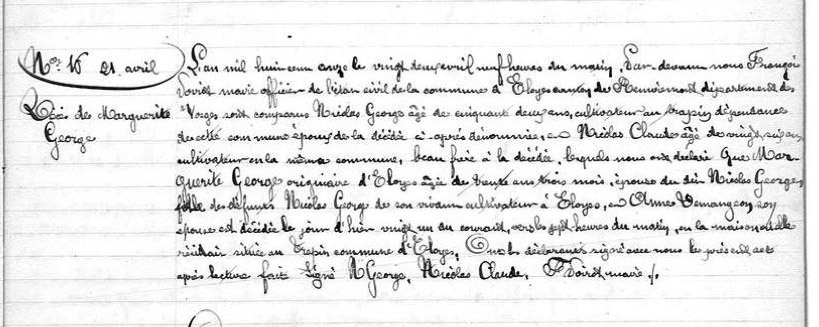 Nos 16 21 avril
Décès de Marguerite
George
L'an mil huit cent onze le vingt deux avril neuf heures du matin, Par-devant nous François
Doirêt maire officier de l'état civil de la commune d'Eloyes canton de Remiremont département des
Vosges sont comparus Nicolas George âgé de cinquante deux ans, cultivateur au trapin dépendance
de cette commune époux de la décédée ci-après dénommée, et Nicolas Claude âgé de vingt ans
cultivateur en la même commune, beau frère à la décédée, lesquels nous ont déclaré Que Mar-
guerite George originaire d'Eloyes âgée de trente ans trois mois, épouse du dit Nicolas George,
fille des défunts Nicolas George de son vivant cultivateur à Eloyes, et Anne Demangeon, son
épouse est décédée le jour d'hier vingt un du courant, vers les sept heures du matin, en la maison où elle
résidait située au Trapin commune d'Eloyes, Et ont les déclarants signé avec nous le présent acte
après lecture faite Signé N George, Nicolas Claude, F Doirêt maire /.